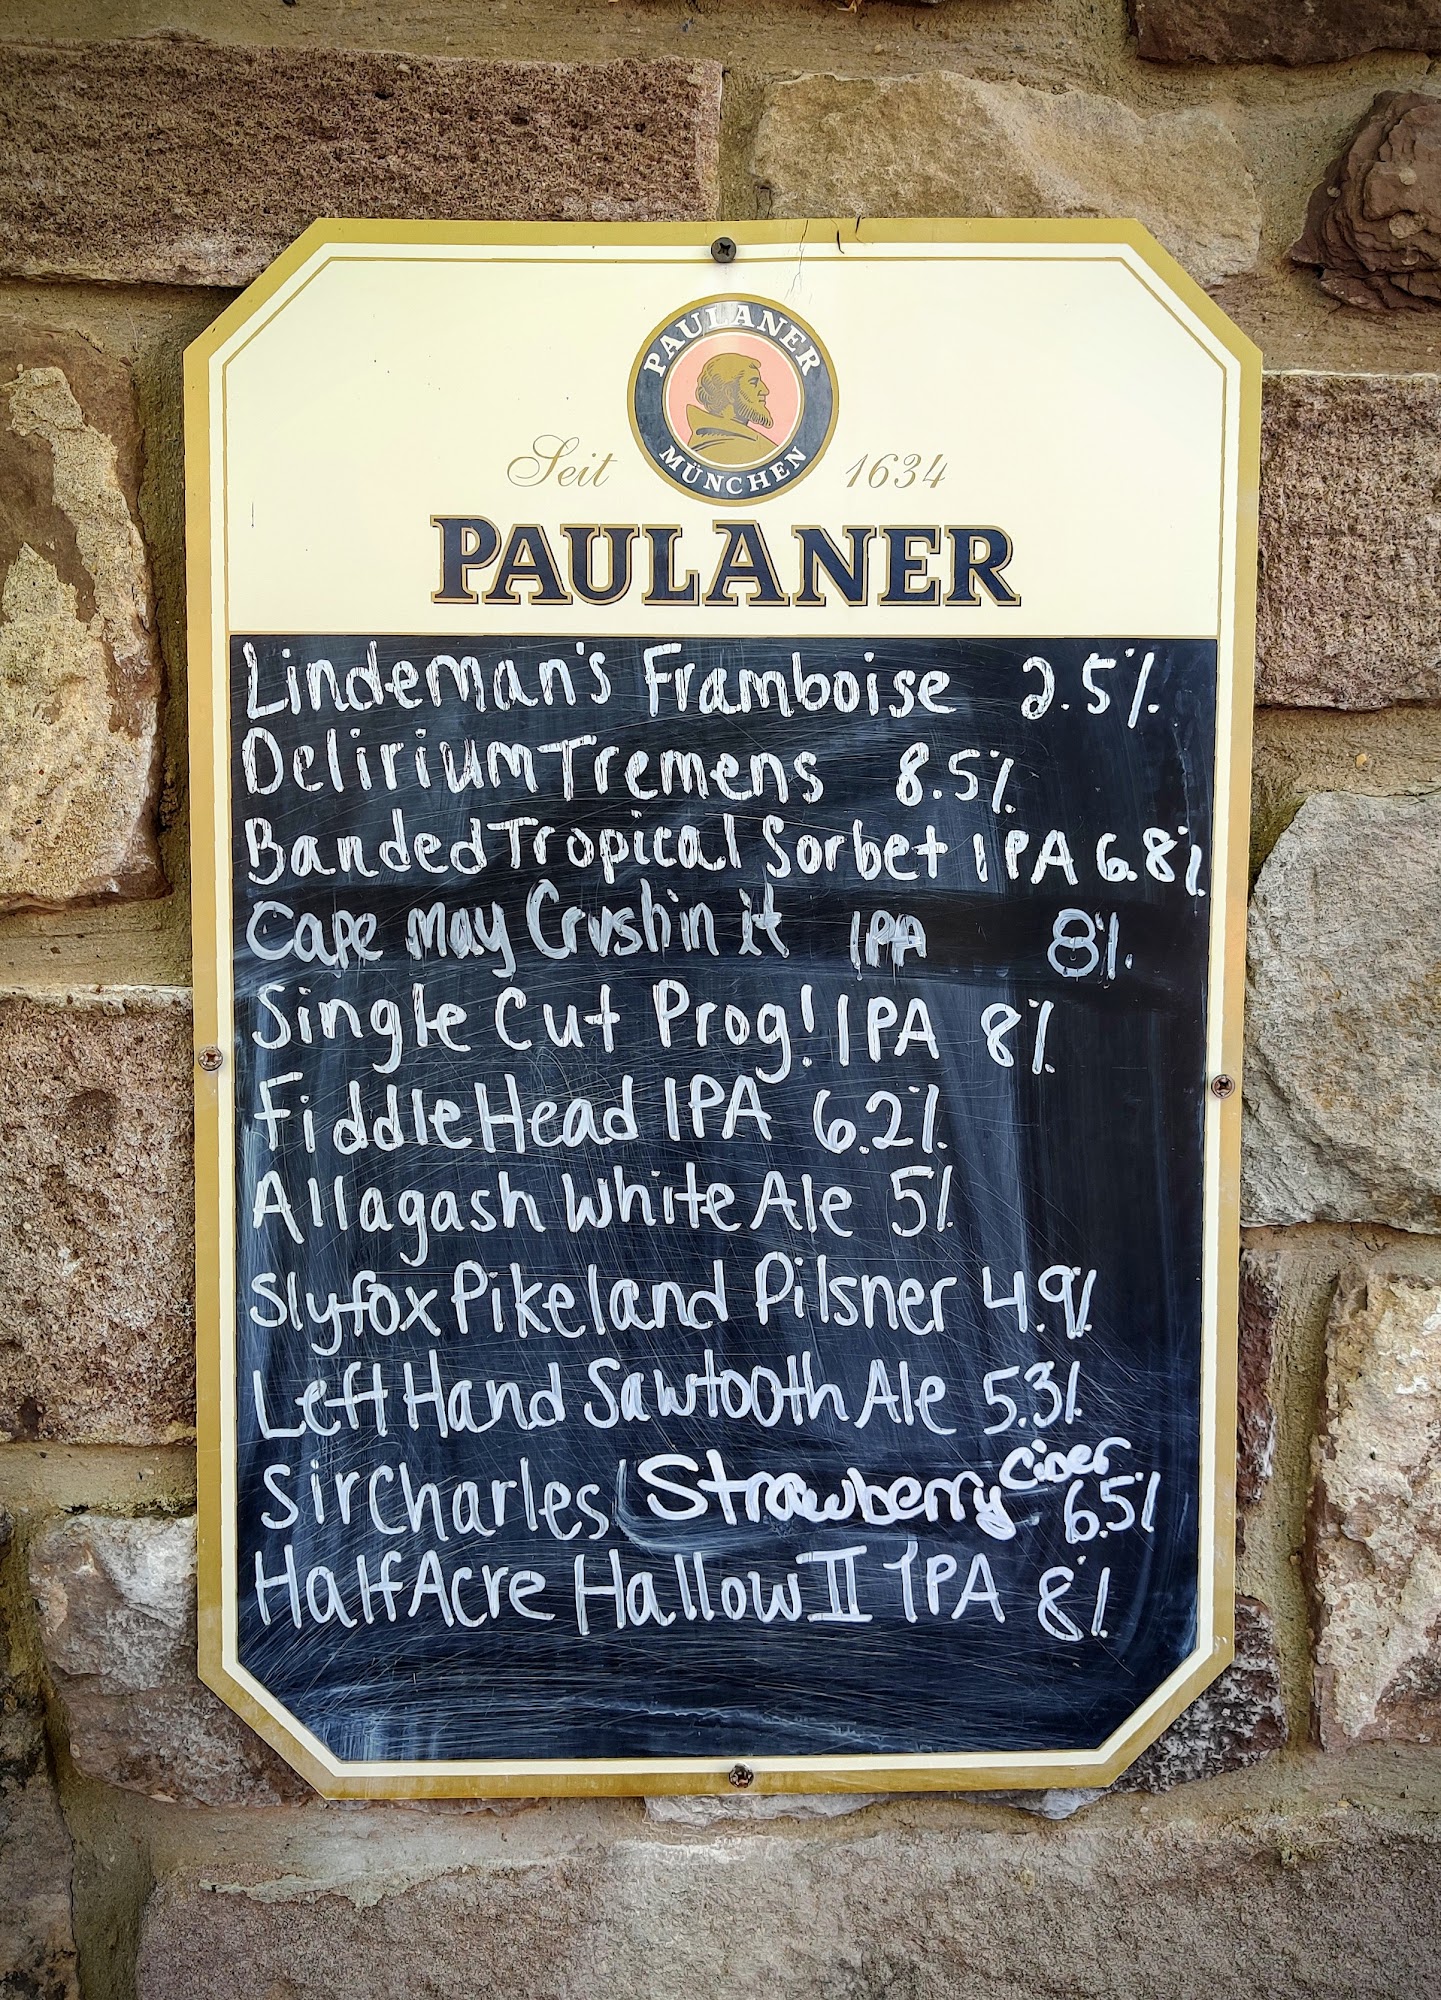 PAULANER
MÜNCHEN
Seit 1634
PAULANER
Lindeman's Framboise 2.5%
Delirium Tremens 8.5%
Banded Tropical Sorbet IPA 6.8%
Cape May Crushin it IPA 8%
Single Cut Prog! IPA 8%
FiddleHead IPA 6.2%
Allagash White Ale 5%
Slyfox Pikeland Pilsner 4.9%
Left Hand Sawtooth Ale 5.3%
Sir Charles Strawberry Cider 6.5%
Half Acre Hallow II IPA 8%